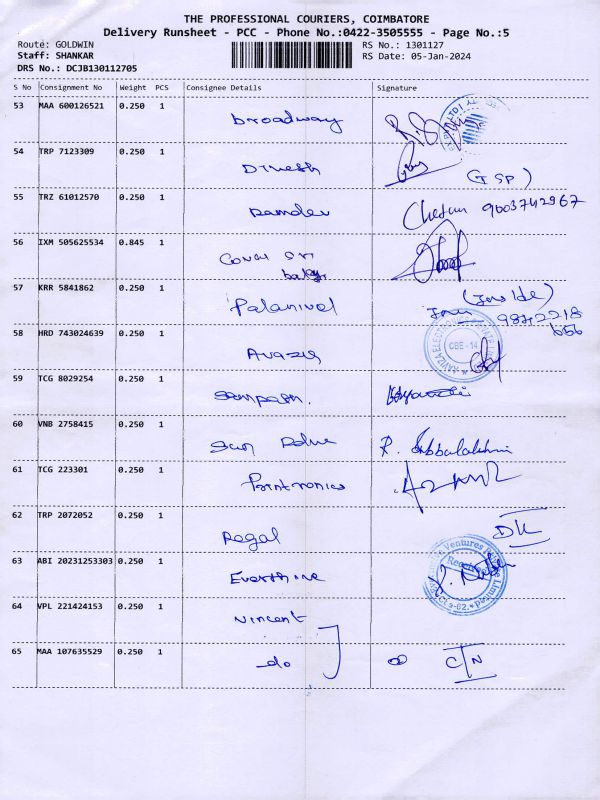 THE PROFESSIONAL COURIERS, COIMBATORE
Delivery Runsheet - PCC - Phone No.:0422-3505555 - Page No.:5
Route: GOLDWIN RS No.: 1301127
Staff: SHANKAR RS Date: 05-Jan-2024
DRS No.: DCJB130112705
S No Consignment No Weight PCS Consignee Details Signature
53 MAA 600126521 0.250 1 broadway
54 TRP 7123309 0.250 1 Dinesh
(GSP)
55 TRZ 61012570 0.250 1 Ramdev Chetan 9003742967
56 IXM 505625534 0.845 1 Covai Sri
57 KRR 5841862 0.250 1 Palanivel (Inside)
98422218
666
58 HRD 743024639 0.250 1
CBE-14
59 TCG 8029254 0.250 1 Sampath.
60 VNB 2758415 0.250 1 Sun R. Subbulakshmi
61 TCG 223301 0.250 1 Printronics
62 TRP 2072052 0.250 1 Regal DK
63 ABI 20231253303 0.250 1 Evershine
Ventures Received
64 VPL 221424153 0.250 1 Vincent
65 MAA 107635529 0.250 1 do CTN